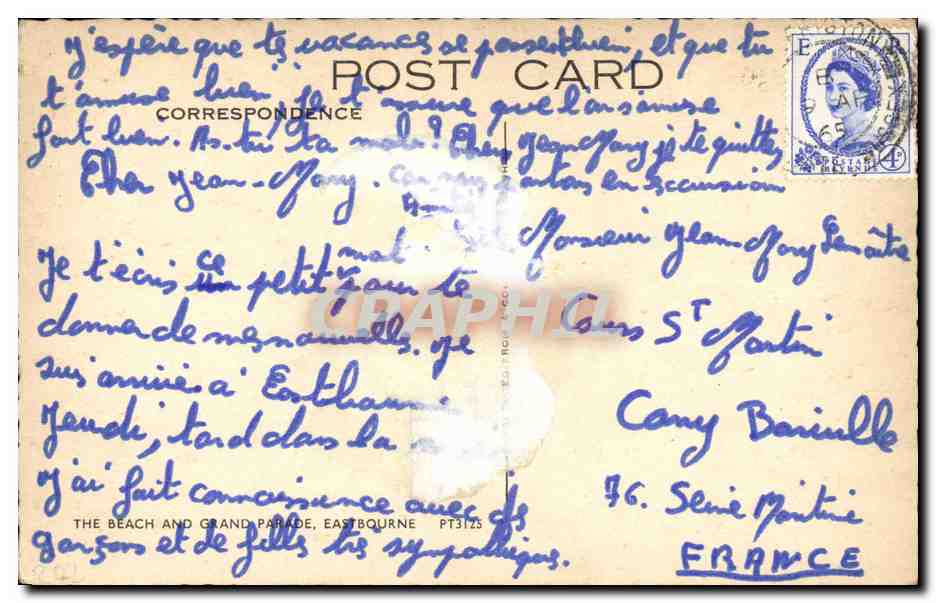 J'espère que tes vacances se passent bien, et que tu
POST CARD
t'amuse bien, je t'assure que l'on s'amuse
CORRESPONDENCE
fort bien. As-tu ta mob? Cher Jean-Mary je te quitte
car nous partons en excursion
Cher Jean-Mary.
Je t'écris ce petit mot pour te
donner de mes nouvelles. Je
suis arrivé à Eastbourne
Jeudi, tard dans la
J'ai fait connaissance avec des
THE BEACH AND GRAND PARADE, EASTBOURNE PT3125
garçons et de filles très sympathiques.
Monsieur Jean-Mary Lemaître
Cours St Martin
Cany Barville
76. Seine Maritime
FRANCE
E R
POSTAGE
REVENUE
4D
AP
65
CPAPHIL